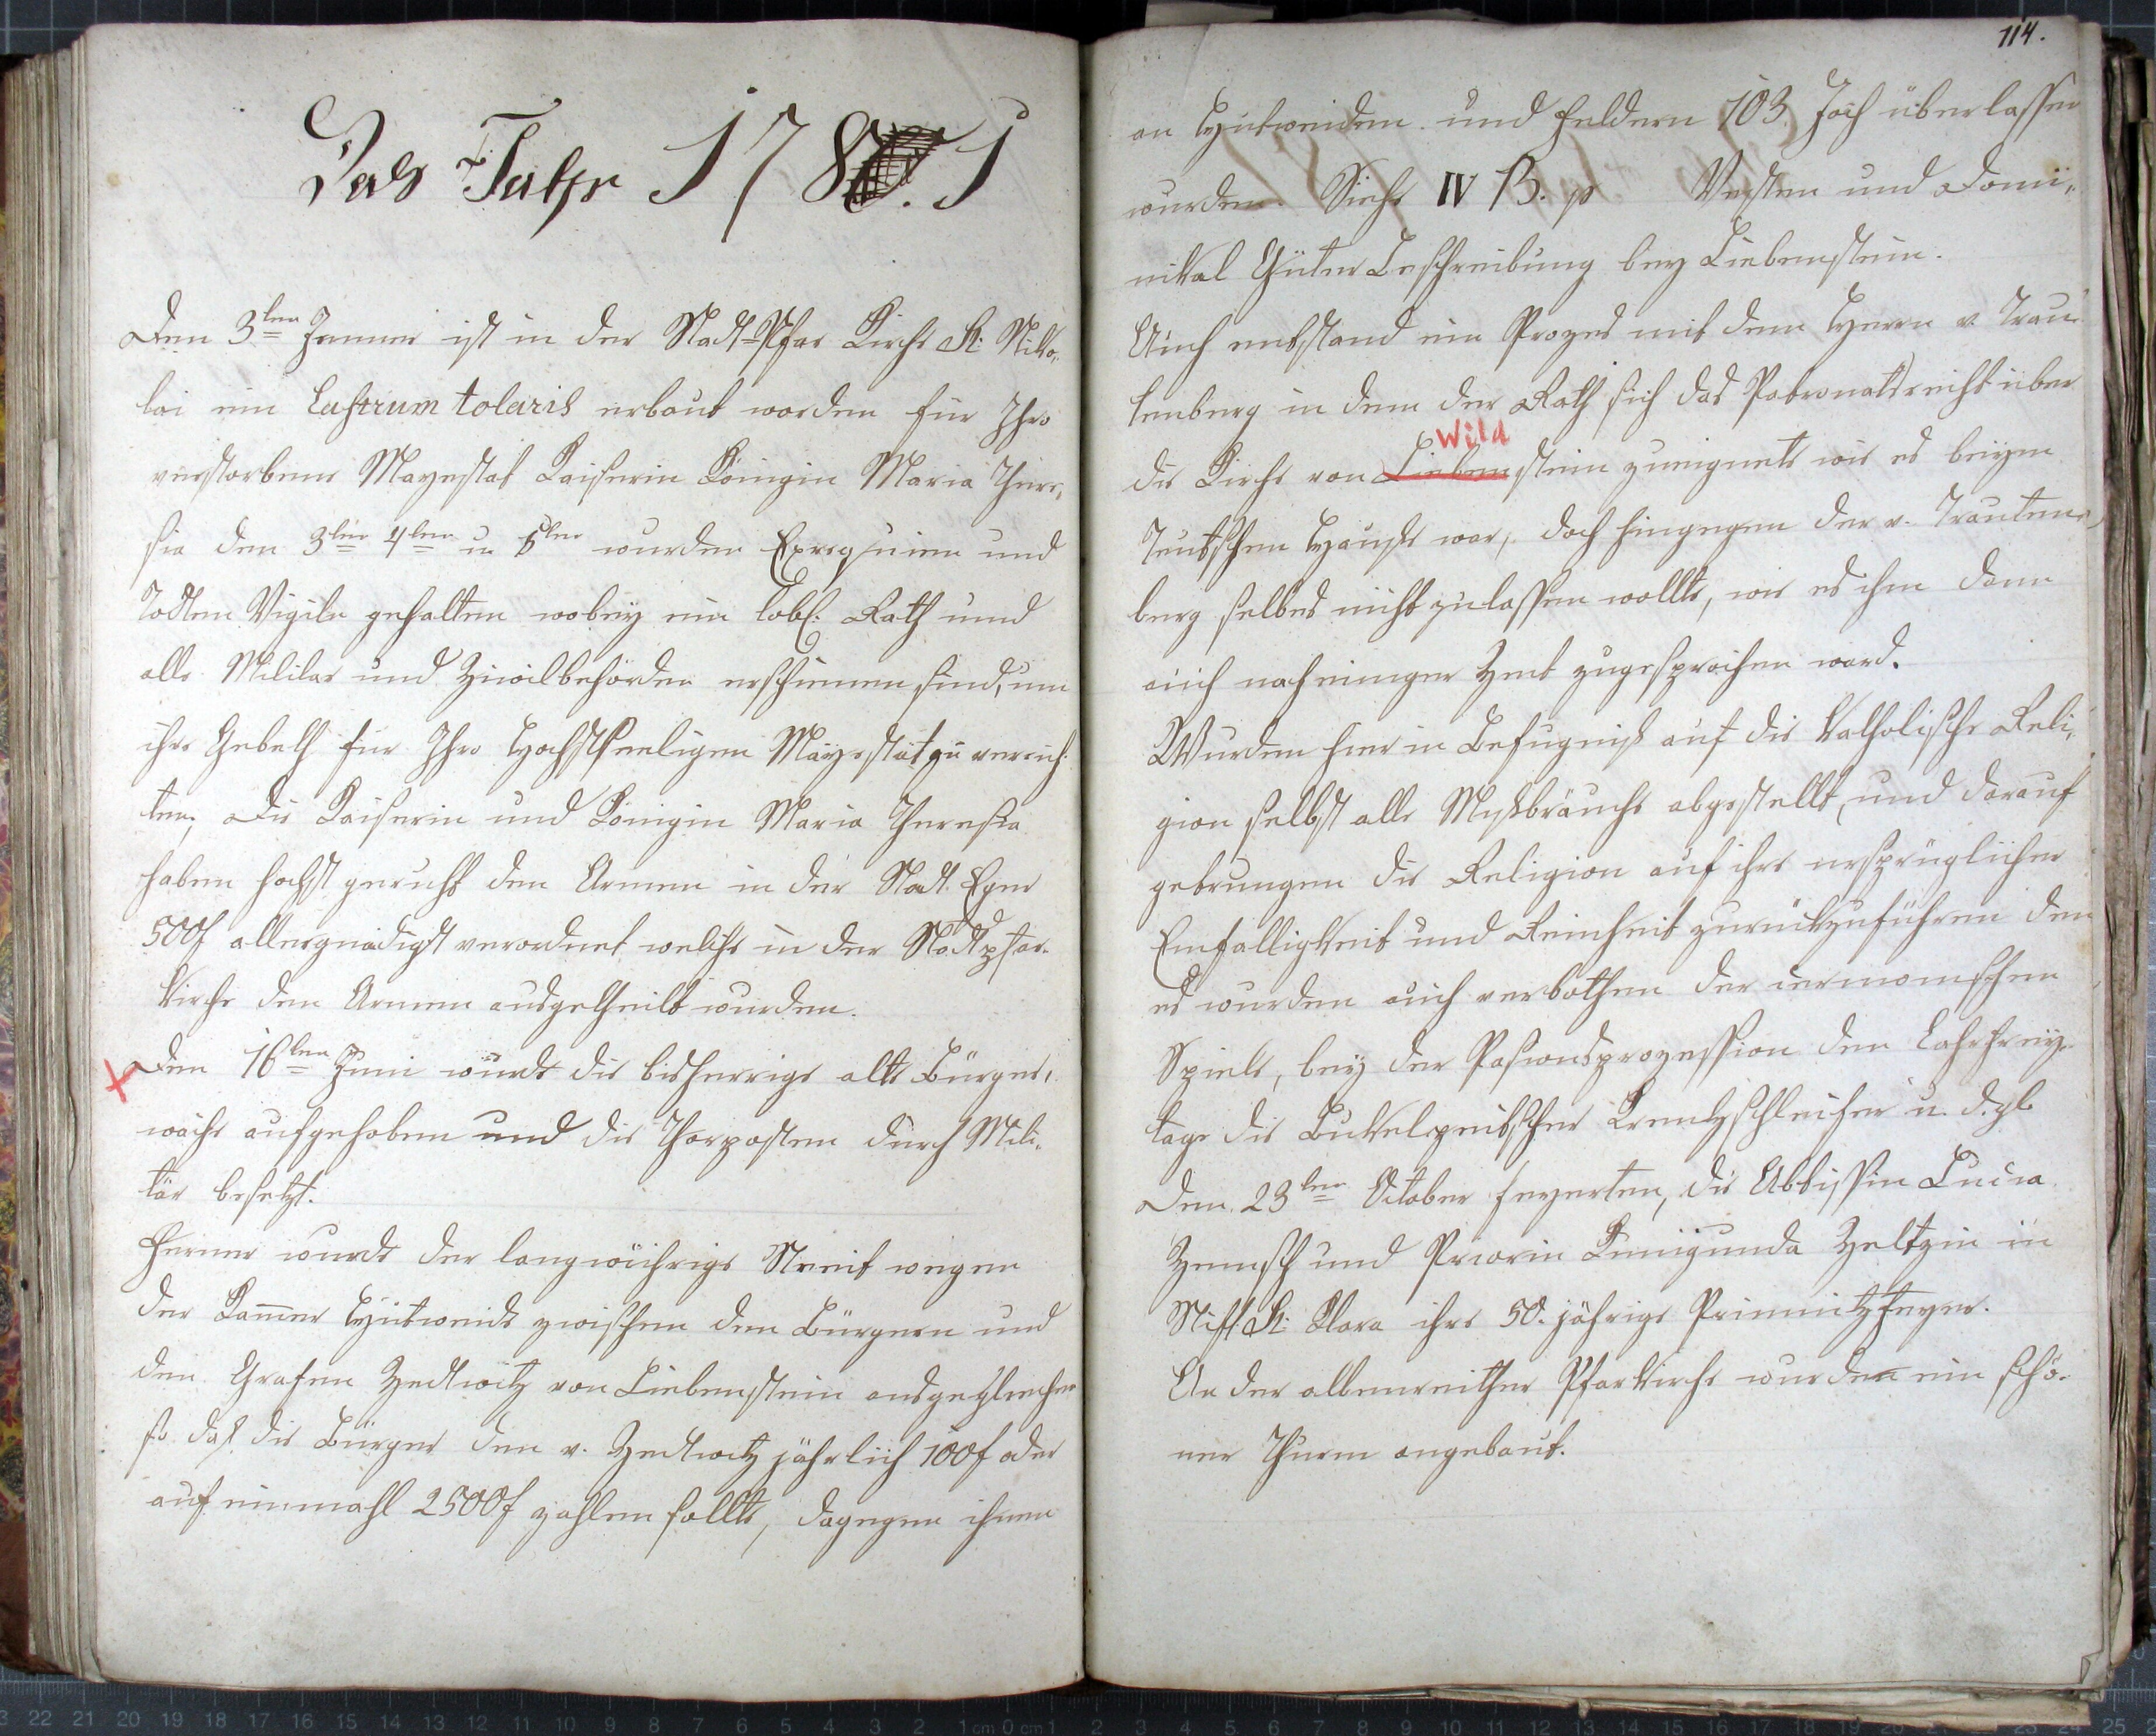 Das Jahr 1781
Den 3ten Jenner ist in der Stadt Pfar Kirche St: Niko„
lai ein Castrum tolaris erbaut worden für Ihro
verstorbene Mayestat Kaiserin Königin Maria There„
sia den 3ten 4ten u 5ten wurden Exequien und
Todten Vigiln gehalten wobey ein löbl: Rath und
alle Militar und Zivilbehörden erschienen sind, um
ihr Gebeth für Ihro Hochstseeligen Mayestät zu verrich„
ten, die Kaiserin und Königin Maria Theresia
haben hochst geruht den Armen in der Stadt Eger
500f allergnädigst verordnet welche in der Stadtpfar„
kirche den Armen ausgetheilt wurden.
Den 16ten Juni wurde die bisherrige alte Bürger„
wache aufgehoben und die Thorposten durch Mili„
tär besetzt.
Ferner wurde der langwührige Streit wegen
der Kam̄er Hutweide zwischen den Bürgern und
den Grafen Zedtwitz von Liebenstein ausgeglichen
so das die Bürger den v. Zedtwitz jährlich 100f oder
auf einmahl 2500f zahlen sollte, dagegen ihnen
114.
an Hutweiden und Feldern 103 Joch überlassen
wurden. Siehe IV B. p Vesten und Domi„
nikal Güter Beschreibung bey Liebenstein.
Auch entstand ein Prozes mit dem Herrn v Trau„
tenberg in dem der Rath sich das Patronatsrecht über
Wild
die Kirche von Liebenstein zueignete wie es beym
Teutschen Hause war, doch hingegen der v. Trauten„
berg selbes nicht zulassen wollte, wie es ihm dann
auch nach einiger Zeit zugesprochen ward.
Wurden hier in Befugniß auf die Katholische Reli„
gion selbst alle Mißbräuche abgestellt, und darauf
gedrungen die Religion auf ihre ursprüglichen
Einfalligkeit und Reinheit zurückzuführen den
es wurden auch verbothen der
Spiele, bey der Pasionsprozession den Carfrey„
tage die Kreutzschleifer u. d. gl.
Den 23ten October feyerten, die Abbissin Lucia
Zemsch und Priorin Kunigunda Zeltzin in
Stift St: Klara ihre 50. jährige Primitzfeyer.
An der albenreither Pfarkirche wurden ein schö„
ner Thurm angebaut.